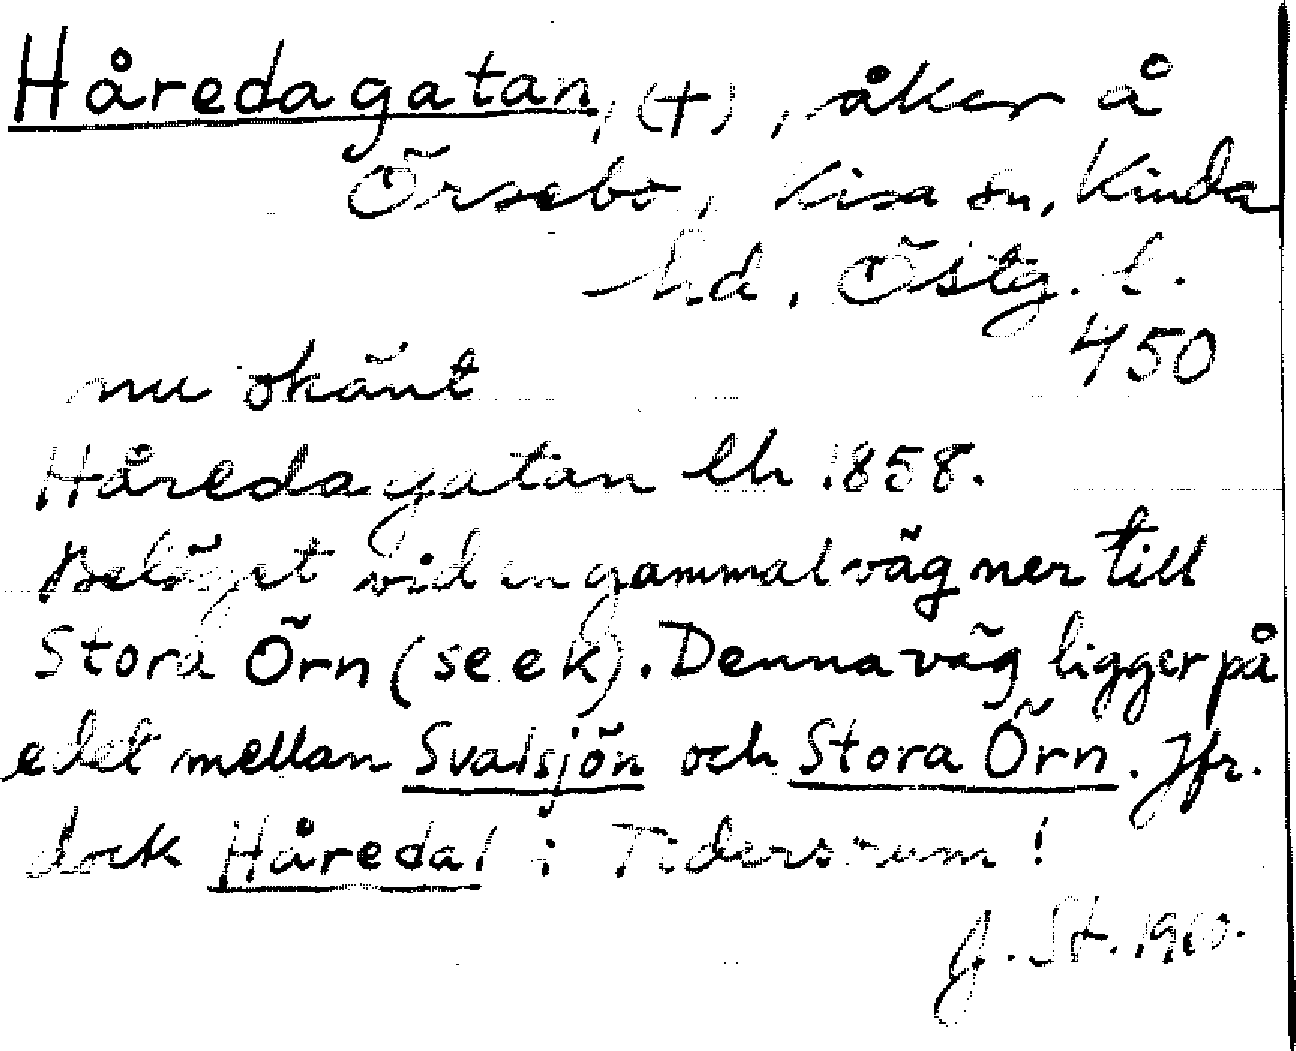 Håredagatan, (+), åker å
Örsebo, Kisa sn, Kinda
hd, Östg. l.
450
nu okänt
Håredagatan Lh 1858.
Beläget vid en gammal väg ner till
Stora Örn (se ek). Denna väg ligger på
edet mellan Svalsjön och Stora Örn. Jfr.
dock Håredal i Tidersrum!
J. St. 1960.